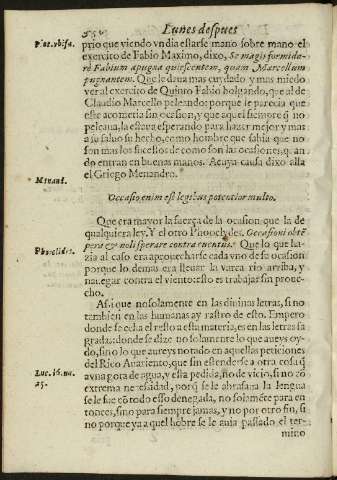 Lunes despues
Plut. vbi sa.
prio que viendo vn dia estarse mano sobre mano el
exercito de Fabio Maximo, dixo, Se magis formida-
re Fabium à pugna quiescentem, quam Marcellum
pugnantem. Que le daua mas cuydado y mas miedo
ver al exercito de Quinto Fabio holgando, que al de
Claudio Marcello peleando: porque le parecia que
este acometia sin ocasion, y que aquel siempre q̃ no
peleaua, la estaua esperando para hazer mejor y mas
a su saluo su hecho, como hombre que sabia que no
son mas los sucessos de como son las ocasiones, quan
do entran en buenas manos. A cuya causa dixo alla
el Griego Menandro.
Menand.
Occasio enim est legibus potentior multo.
Que era mayor la fuerça de la ocasion que la de
qualquiera ley. Y el otro Phocylydes. Occasioni obtẽ
pera & noli sperare contra euentus. Que lo que ha-
Phocilides.
zia al caso era aprouecharse cada vno de su ocasion
porque lo demas era lleuar la varca rio arriba, y
nauegar contra el viento: esto es trabajar sin proue-
cho.
Assi que no solamente en las diuinas letras, sino
tambien en las humanas ay rastro de esto. Empero
donde se echa el resto a esta materia, es en las letras sa
gradas: donde se dize no solamente lo que aueys oy-
do, sino lo que aureys notado en aquellas peticiones
del Rico Auariento, que sin estenderse a otra cosa q̃
Luc. 16. nu.
25.
a vna gota de agua, y essa pedida, no de vicio, si no cõ
extrema necessidad, porq̃ se le abrasaua la lengua
se le fue cõ todo esso denegada, no solamẽte para en
tonces, sino para siempre jamas, y no por otro fin, si
no porque ya a quel hõbre se le auia passado el ter-
mino